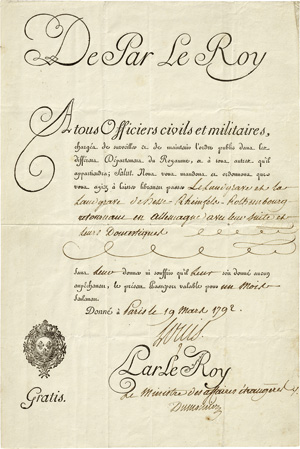 De Par Le Roy
A tous Officiers civils et militaires,
chargés de surveiller & de maintenir l'ordre public dans les
différens Départemens du Royaume, & à tous autres qu'il
appartiendra; Salut. Nous vous mandons et ordonnons que
vous ayiez à laisser librement passer Le Landgrave et la
Landgrave de Hesse-Rhinfels-Rothembourg
retournant en Allemagne avec leur suite et
leurs Domestiques
sans leur donner ni souffrir qu'il leur soit donné aucun
empêchement, les présens Passeports valables pour un Mois
seulement.
Donné à Paris le 19 mars 1792.
Louis
Par Le Roy
Le Ministre des affaires étrangères
Dumouriez
Gratis.